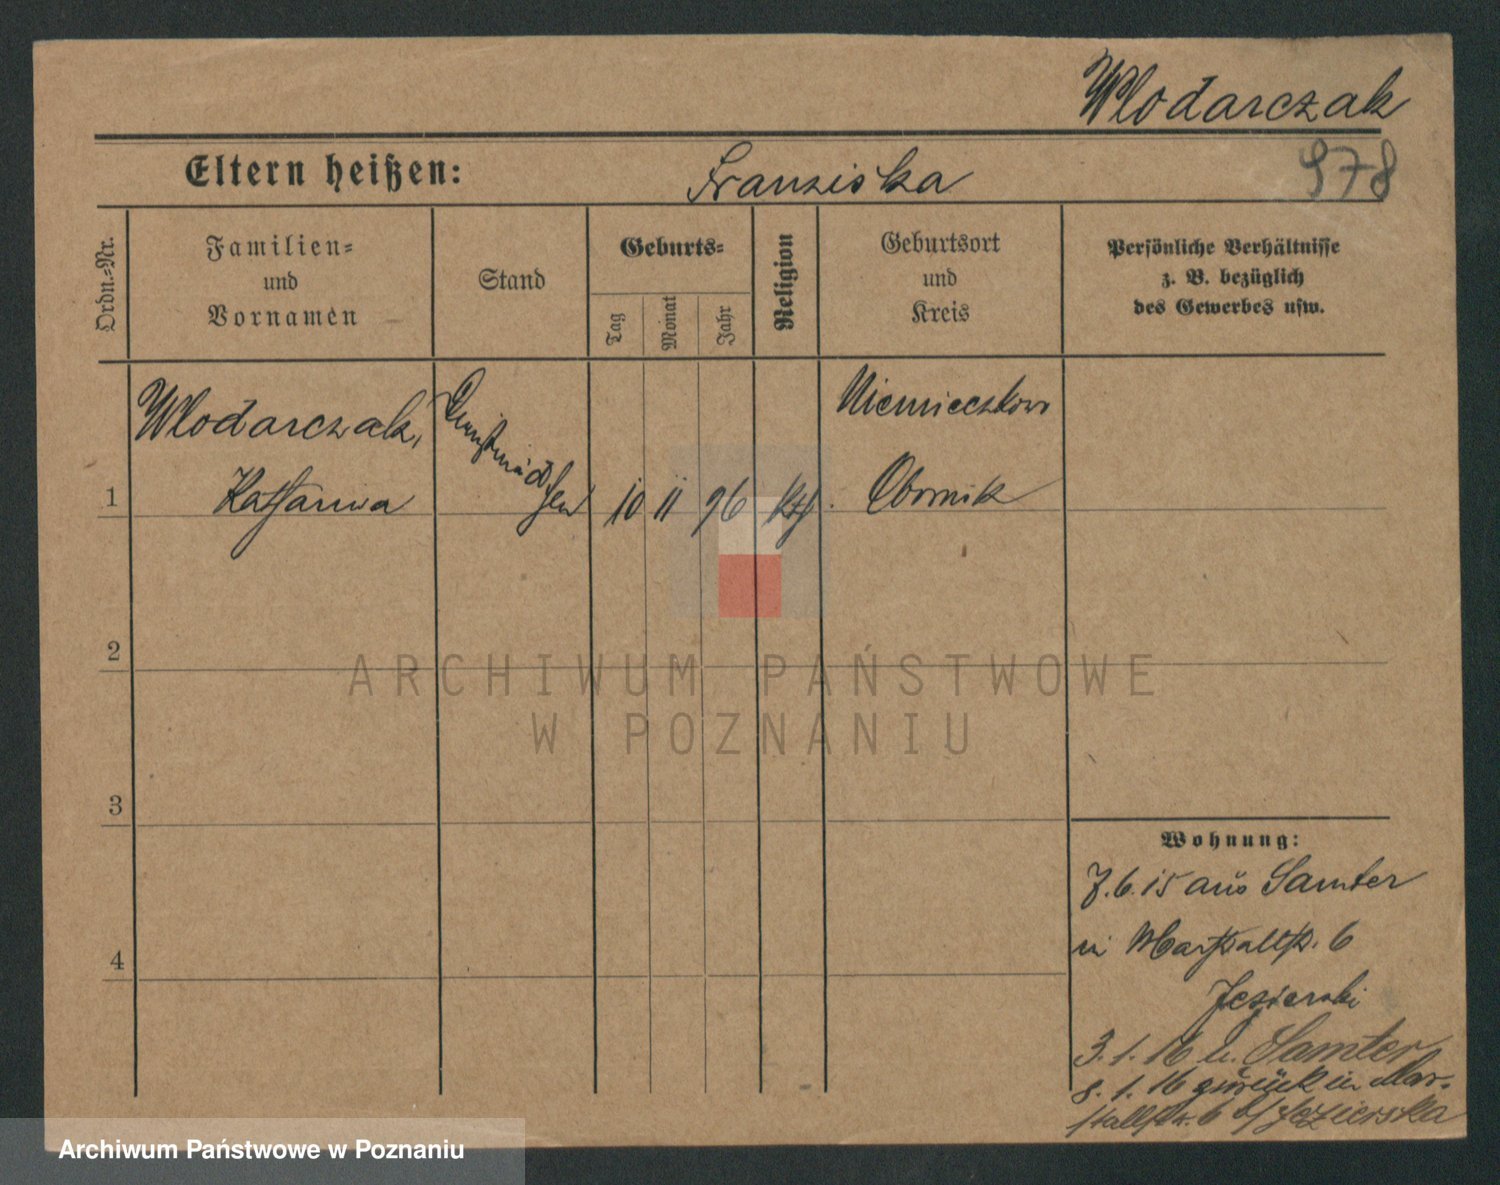 Wlodarczak
Eltern heißen:
Franziska
978
Ordn.=Nr.
Familien=
und
Vornamen
Stand
Geburts=
Tag
Monat
Jahr
Religion
Geburtsort
und
Kreis
Persönliche Verhältnisse
z. B. bezüglich
des Gewerbes usw.
1
Wlodarczak,
Katharina
Dienstmäd
chen
10
11
96
kth.
Niemieczkowo
Obornik
2
ARCHIWUM PAŃSTWOWE
W POZNANIU
3
4
Wohnung:
7.6.15 aus Samter
in Marstallstr. 6
Jezierski
3.1.16 n. Samter
8.1.16 zurück in Mar-
stallstr. 6 b/ Jezierska
Archiwum Państwowe w Poznaniu